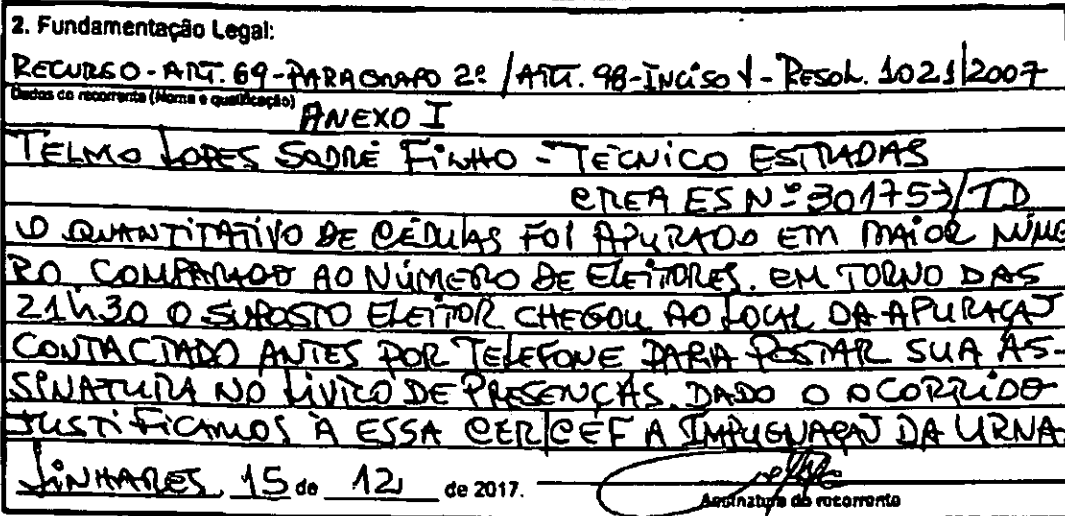 2. Fundamentação Legal:
RECURSO - ART. 69 - PARAGRAFO 2º / ART. 98 - INCISO V - RESOL. 1021/2007
Dados do recorrente (Nome e qualificação)
ANEXO I
TELMO LOPES SODRÉ FILHO - TECNICO ESTRADAS
CREA ES Nº 301753/TD
O QUANTITATIVO DE CÉDULAS FOI APURADO EM MAIOR NÚME
RO COMPARADO AO NÚMERO DE ELEITORES. EM TORNO DAS
21h30 O SUPOSTO ELEITOR CHEGOU AO LOCAL DA APURAÇAO
CONTACTADO ANTES POR TELEFONE PARA POSTAR SUA AS-
SINATURA NO LIVRO DE PRESENÇAS. DADO O OCORRIDO
JUSTIFICAMOS À ESSA CER/CEF A IMPUGNAÇAO DA URNA.
LINHARES, 15 de 12 de 2017.
Assinatura do recorrente